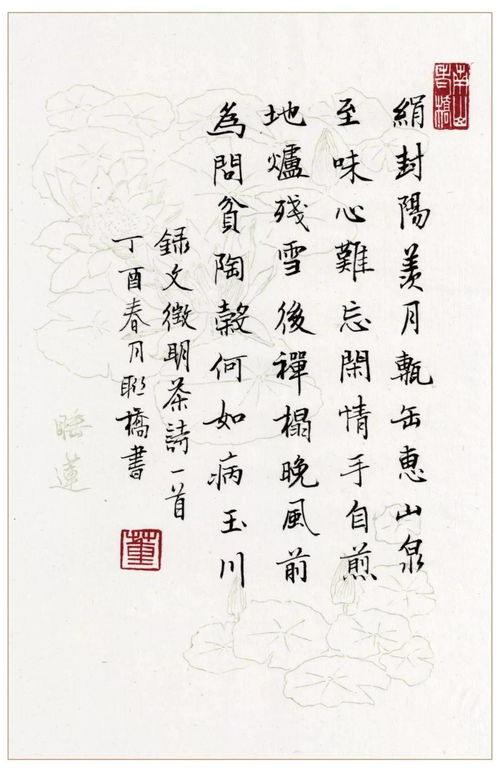 絹封陽羨月缶惠山泉
至味心難忘閑情手自煎
地爐殘雪後禪榻晚風前
為問貧陶穀何如病玉川
錄文徵明茶詩一首
丁酉春月橋書
董
睡蓮